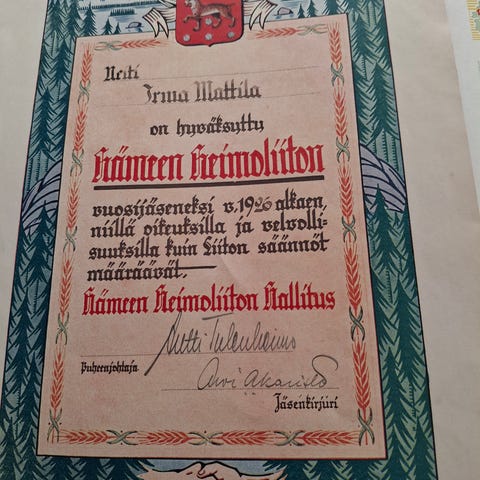 Neiti
Irma Mattila
on hyväksytty
Hämeen Heimoliiton
vuosijäseneksi v. 1926 alkaen,
niillä oikeuksilla ja velvolli-
suuksilla kuin Liiton säännöt
määräävät.
Hämeen Heimoliiton Hallitus
Antti Tulenheimo
Puheenjohtaja
Jäsenkirjuri